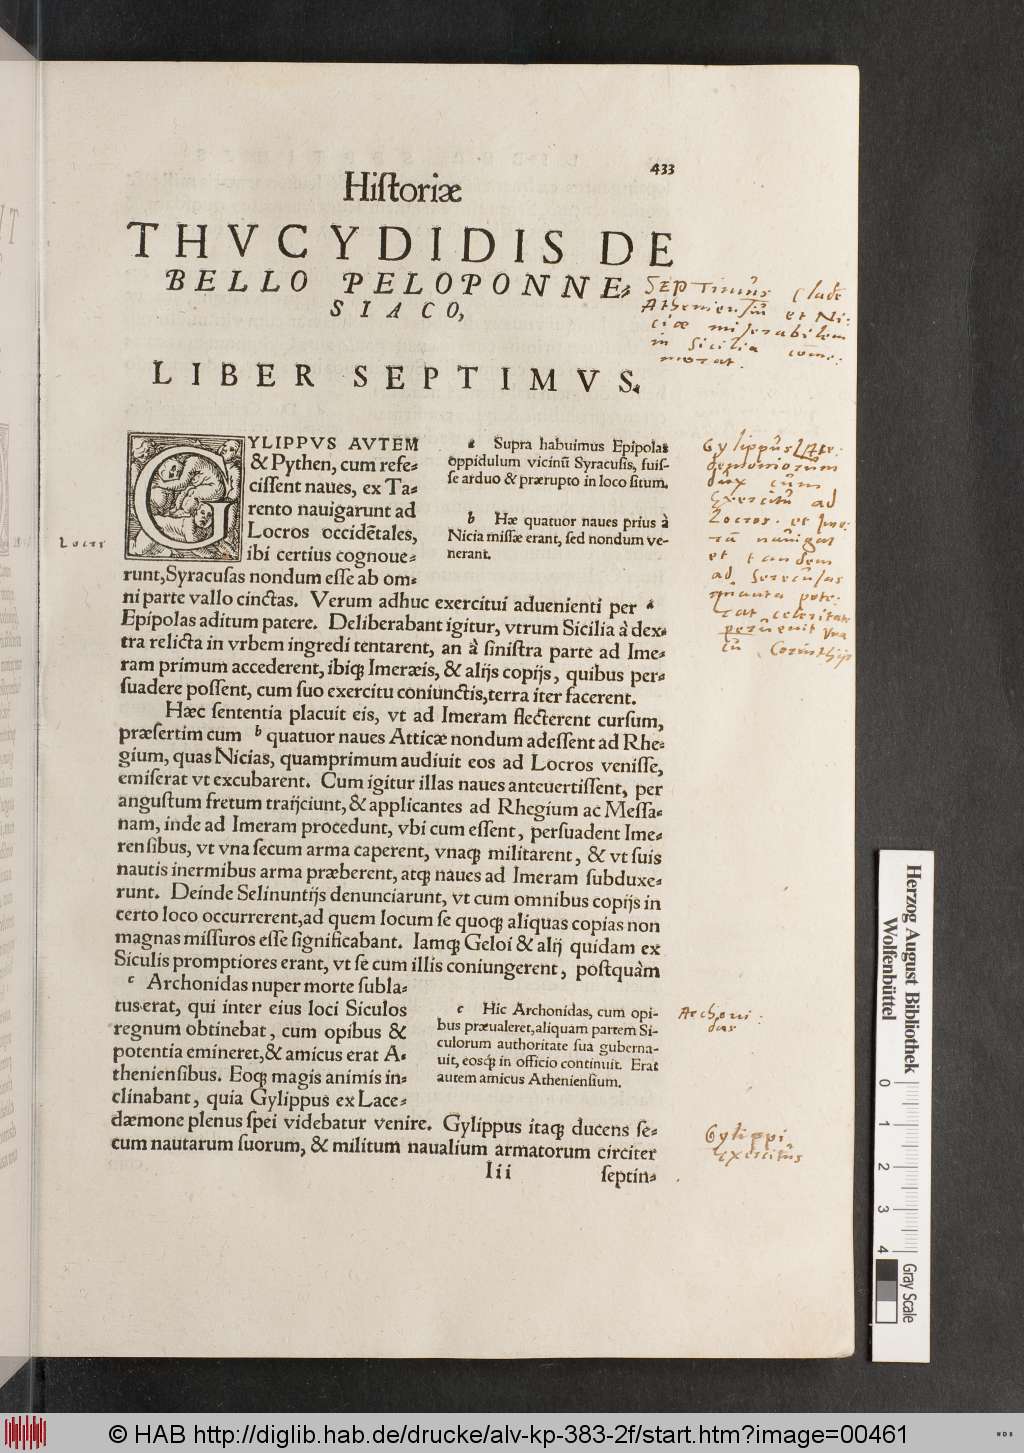 433
Hiſtoriæ
THVCYDIDIS DE
BELLO PELOPONNE-
SIACO,
LIBER SEPTIMVS.
SEPTimus Clade
Atheniensiū et Ni:
ciæ miserabilem
in Sicilia com̄e:
morat.
GYLIPPVS AVTEM
& Pythen, cum refe-
ciſſent naues, ex Ta-
rento nauigarunt ad
Locros occidētales,
ibi certius cognoue-
runt, Syracuſas nondum eſſe ab om-
a Supra habuimus Epipolas
oppidulum vicinū Syracuſis, fuiſ-
ſe arduo & prærupto in loco ſitum.
b Hæ quatuor naues prius à
Nicia miſſæ erant, ſed nondum ve-
nerant.
Locri
Gylippus Lace:
demoniorum
dux cum
Exercitu ad
Locros. et Ime:
rā nauigat
et tandem
ad Siracusas
quanta pote:
rat celeritate
peruenit vna
cū Corinthijs
ni parte vallo cinctas. Verum adhuc exercitui aduenienti per a
Epipolas aditum patere. Deliberabant igitur, vtrum Sicilia à dex-
tra relicta in vrbem ingredi tentarent, an à ſiniſtra parte ad Ime-
ram primum accederent, ibiq́; Imeræis, & alijs copijs, quibus per-
ſuadere poſſent, cum ſuo exercitu coniunctis, terra iter facerent.
Hæc ſententia placuit eis, vt ad Imeram flecterent curſum,
præſertim cum b quatuor naues Atticæ nondum adeſſent ad Rhe-
gium, quas Nicias, quamprimum audiuit eos ad Locros veniſſe,
emiſerat vt excubarent. Cum igitur illas naues anteuertiſſent, per
anguſtum fretum traijciunt, & applicantes ad Rhegium ac Meſſa-
nam, inde ad Imeram procedunt, vbi cum eſſent, perſuadent Ime-
renſibus, vt vna ſecum arma caperent, vnaq́; militarent, & vt ſuis
nautis inermibus arma præberent, atq́; naues ad Imeram ſubduxe-
runt. Deinde Selinuntijs denunciarunt, vt cum omnibus copijs in
certo loco occurrerent, ad quem locum ſe quoq́; aliquas copias non
magnas miſſuros eſſe ſignificabant. Iamq́; Geloi & alij quidam ex
Siculis promptiores erant, vt ſe cum illis coniungerent, poſtquàm
c Archonidas nuper morte ſubla-
tus erat, qui inter eius loci Siculos
regnum obtinebat, cum opibus &
potentia emineret, & amicus erat A-
thenienſibus. Eoq́; magis animis in-
clinabant, quia Gylippus ex Lace-
c Hic Archonidas, cum opi-
bus præualeret, aliquam partem Si-
culorum authoritate ſua guberna-
uit, eosq́; in officio continuit. Erat
autem amicus Athenienſium.
Archoni:
das
dæmone plenus ſpei videbatur venire. Gylippus itaq́; ducens ſe-
cum nautarum ſuorum, & militum naualium armatorum circiter
Gylippi
exercitus
Iii
ſeptin-
Herzog August Bibliothek
Wolfenbüttel
0 1 2 3 4
Gray Scale
© HAB http://diglib.hab.de/drucke/alv-kp-383-2f/start.htm?image=00461